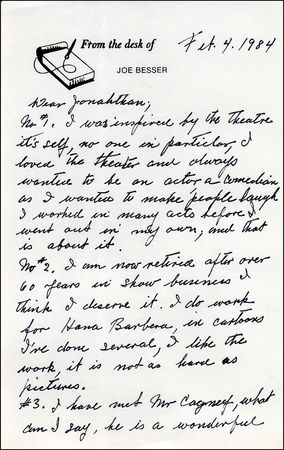 From the desk of
JOE BESSER
Feb. 4. 1984
Dear Jonahthan;
No #1. I was inspired by the theatre
it's self, no one in particular, I
loved the theater and always
wanted to be an actor a comedian
as I wanted to make people laugh
I worked in many acts before I
went out in my own, and that
is about it.
No #2. I am now retired after over
60 years in show business I
think I deserve it. I do work
for Hana Barbera, in cartoons
I've done several, I like the
work, it is not as hard as
pictures.
#3. I have met Mr Cagney, what
can I say, he is a wonderful